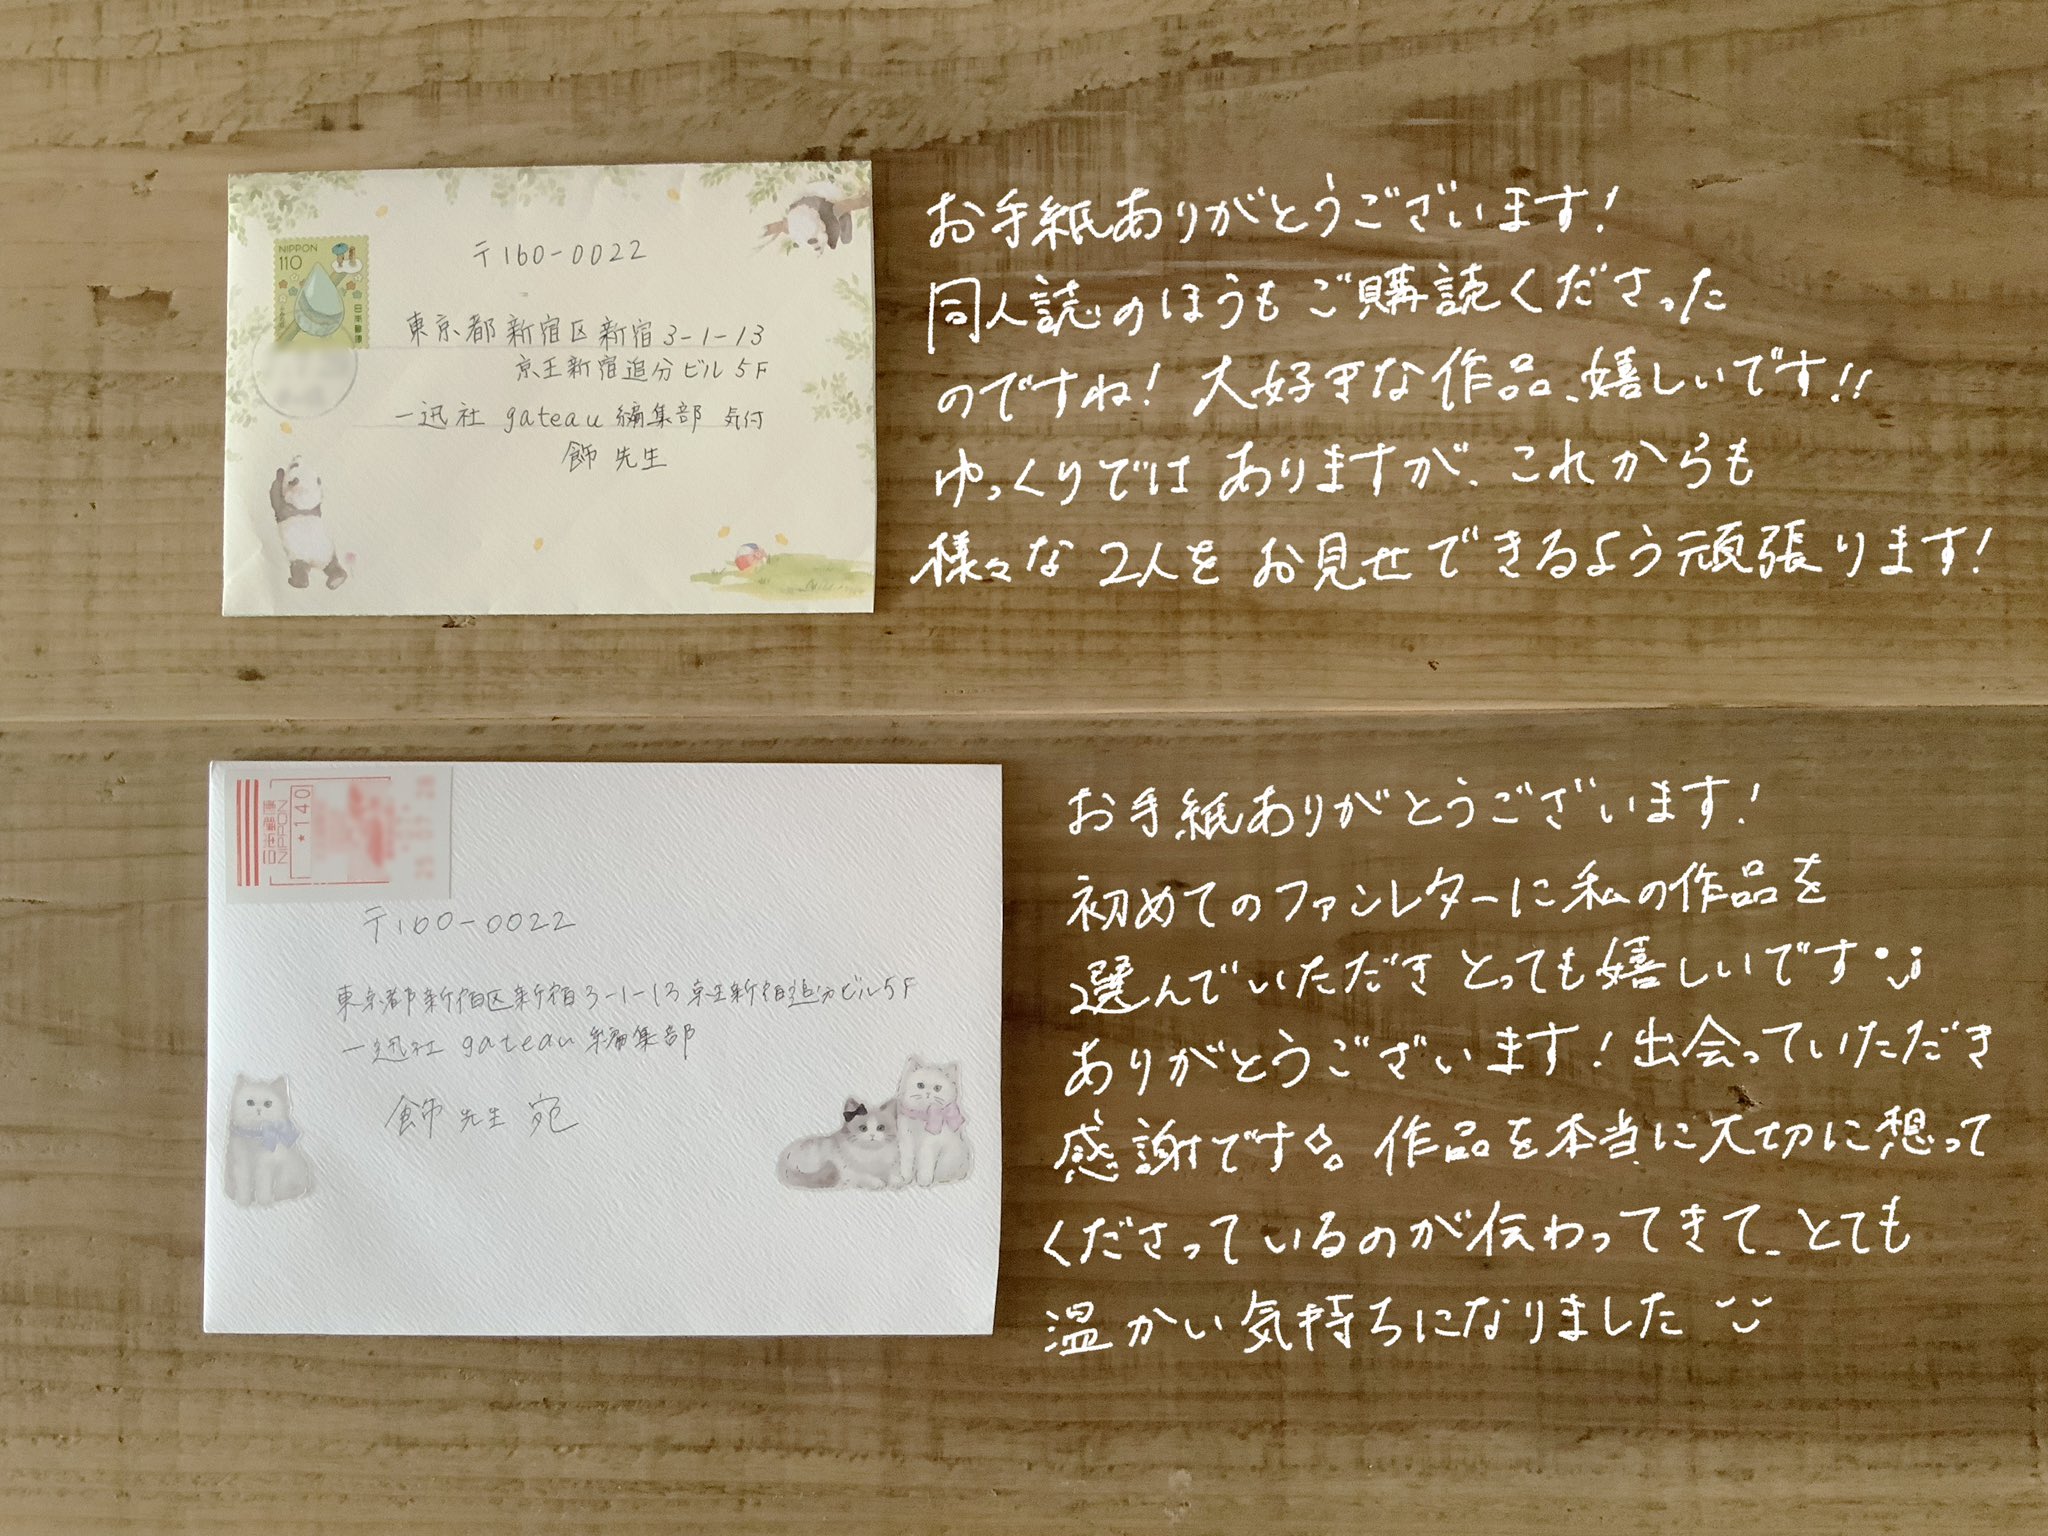 NIPPON
110
日本郵便
〒160-0022
東京都新宿区新宿3-1-13
京王新宿追分ビル5F
一迅社 gateau編集部 気付
飾 先生
お手紙ありがとうございます!
同人誌のほうもご購読くださった
のですね!大好きな作品、嬉しいです!!
ゆっくりではありますが、これからも
様々な2人をお見せできるよう頑張ります!
日本郵便
NIPPON
*140
〒160-0022
東京都新宿区新宿3-1-13 京王新宿追分ビル5F
一迅社 gateau 編集部
飾 先生 宛
お手紙ありがとうございます!
初めてのファンレターに私の作品を
選んでいただきとっても嬉しいです
ありがとうございます!出会っていただき
感謝です。作品を本当に大切に想って
くださっているのが伝わってきて、とても
温かい気持ちになりました